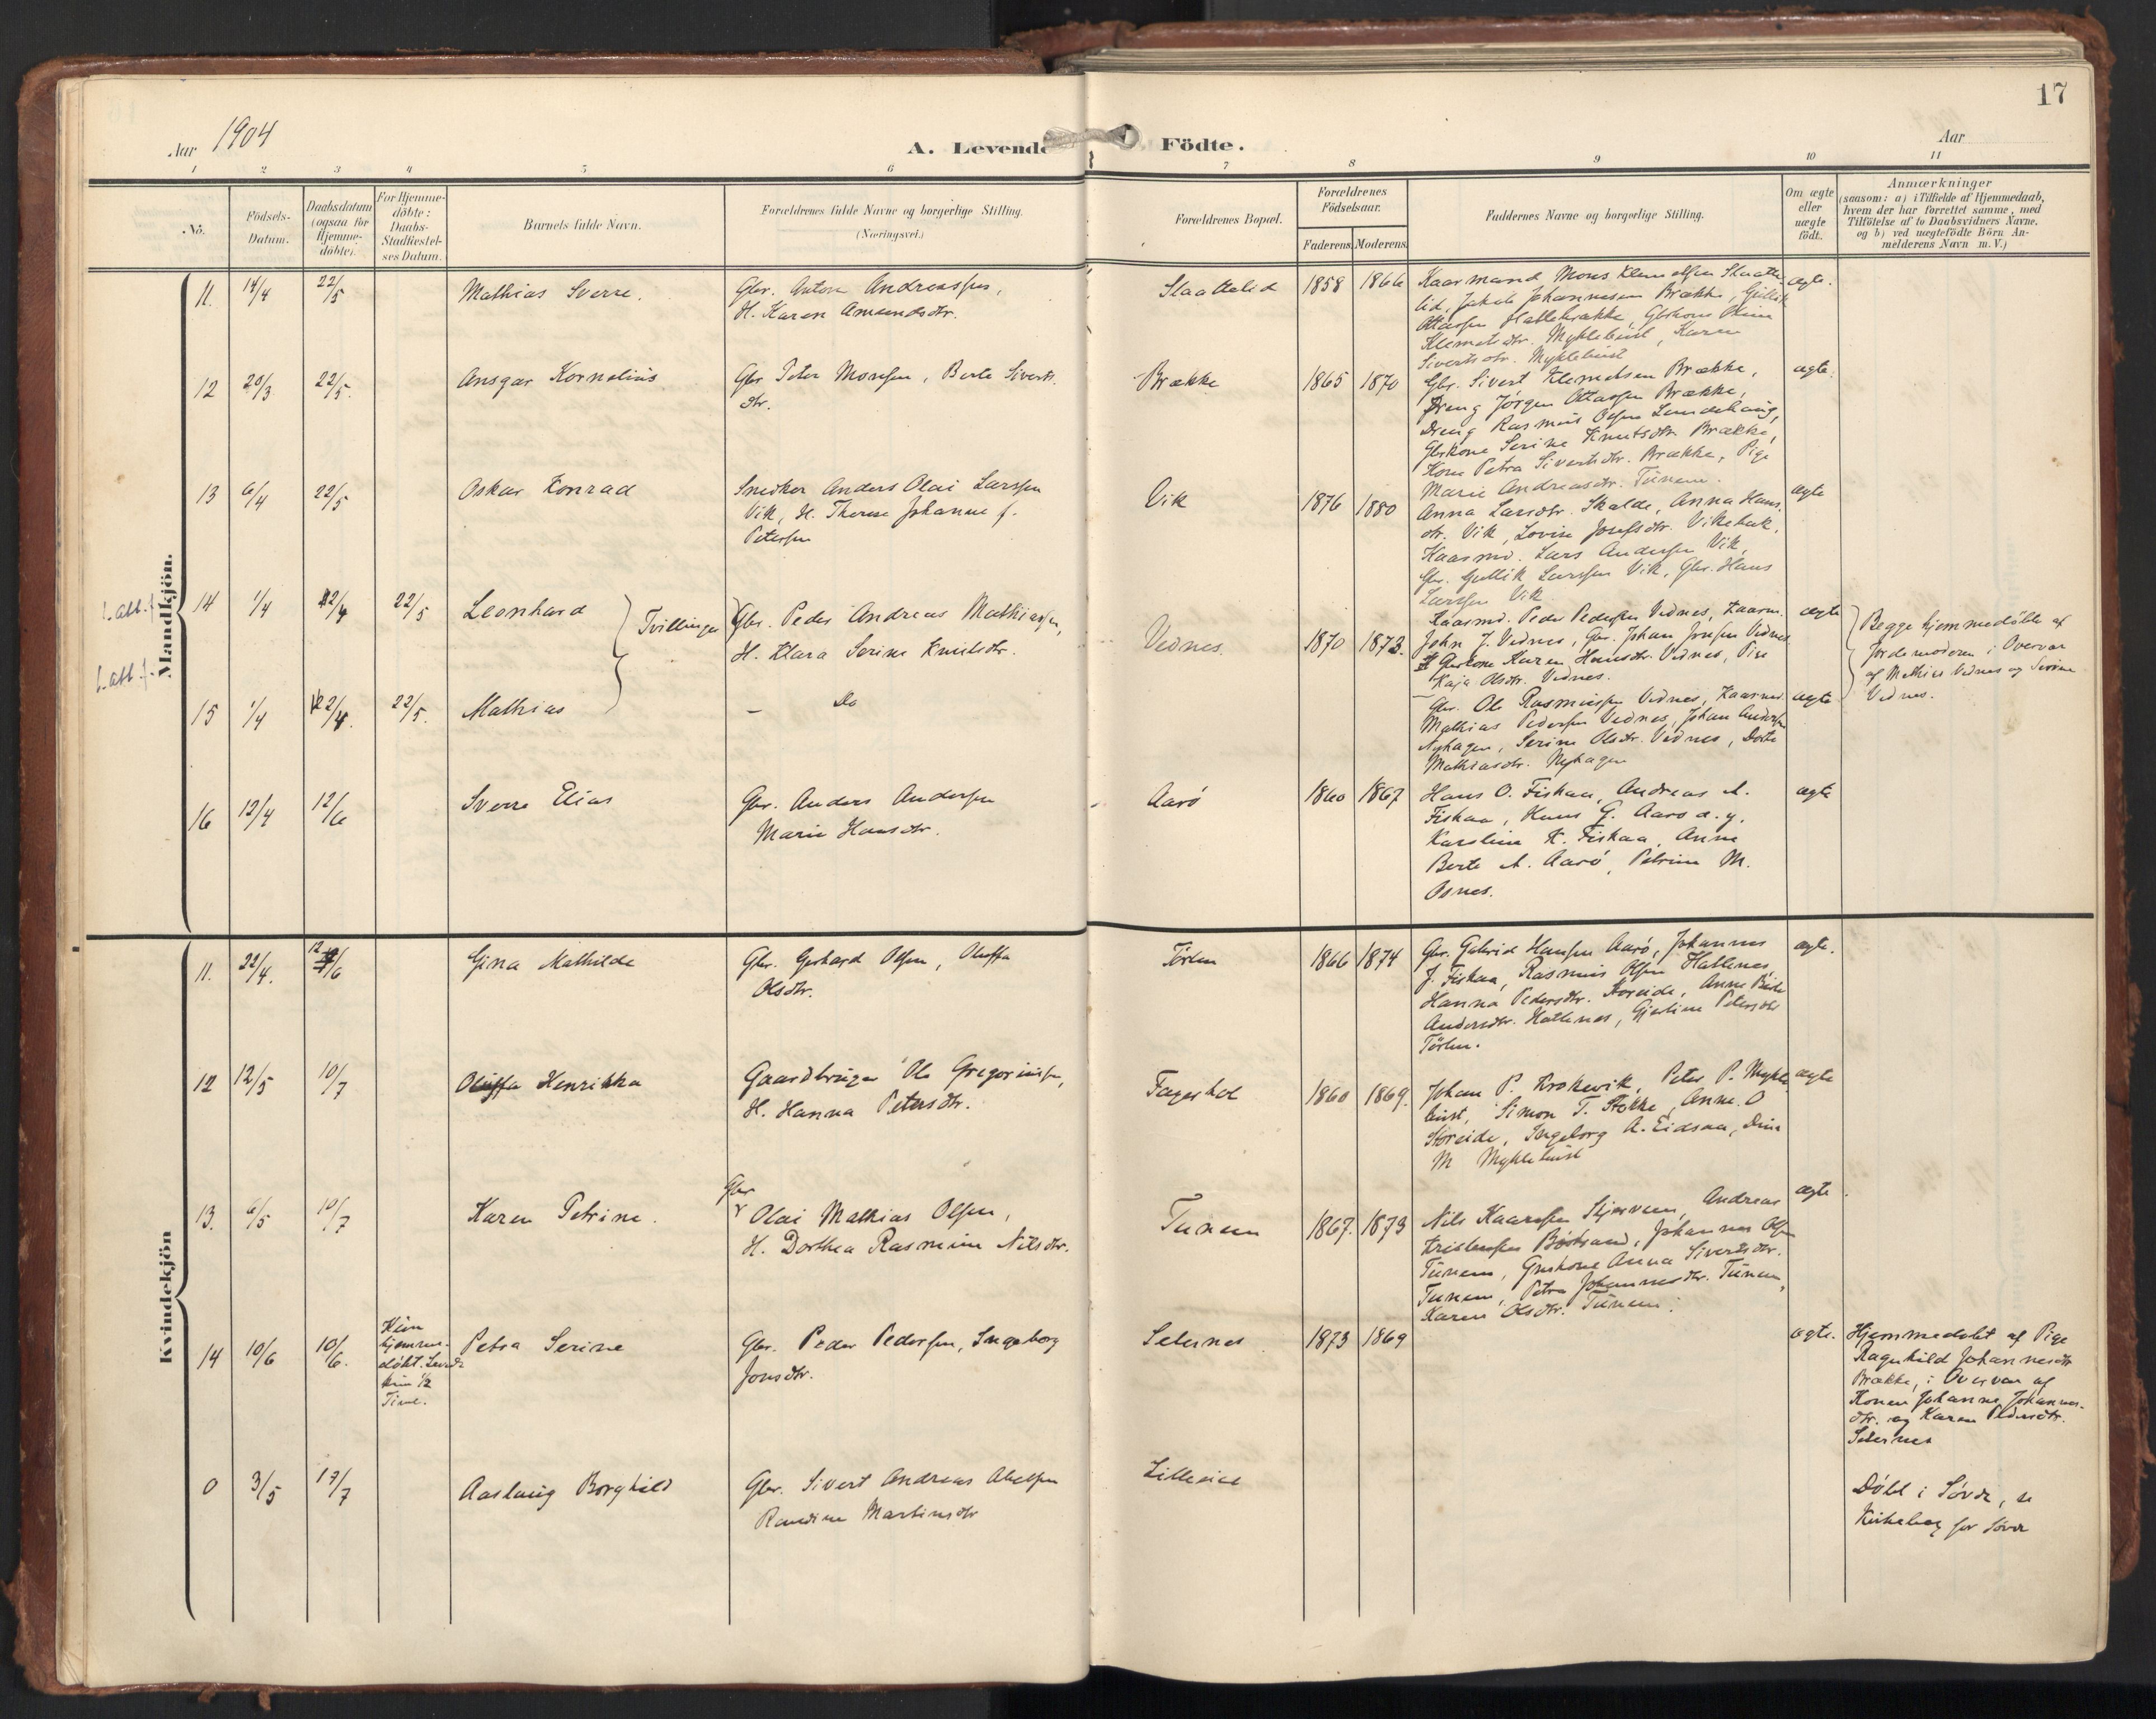 17
Aar 1904
A. Levende Födte.
Aar
1 2 3 4 5 6 7 8 9 10 11
No.
Födsels-Datum.
Daabsdatum (ogsaa for Hjemmedöbte).
For Hjemmedöbte: Daabs-Stadfæstelses Datum.
Barnets fulde Navn.
Forældrenes fulde Navne og borgerlige Stilling.
(Næringsvei.)
Forældrenes Bopæl.
Forældrenes Födselsaar.
Faderens. Moderens.
Faddernes Navne og borgerlige Stilling.
Om ægte eller uægte födt.
Anmærkninger
(saasom: a) i Tilfælde af Hjemmedaab,
hvem der har forrettet samme, med
Tilföielse af to Daabsvidners Navne.
og b) ved uægtefödte Börn An-
melderens Navn m. V.)
Mandkjön.
11. 14/4 22/5 Mathias Sverre. Gbr. Anton Andreassen,
H. Karen Amundsdtr.
Slaattelid 1858 1866 Kaarmand Mons Klemetsen Slaatte- ægte.
lid, Jakob Johannesen Brække,
Ottarsen Hallebrække, Gbrkone
Klemetsdtr. Myklebust, Karen
Sivertsdtr. Myklebust
12 20/3 22/5. Ansgar Kornelius Gbr Peter Monsen, Berte Siverts
dtr.
Brække 1865 1870 Gbr. Sivert Klemetsen Brække, ægte.
Dreng Jørgen Ottarsen Brække,
Dreng Rasmus Olsen Lundehaug,
Gbrkone Serine Knutsdtr Brække,
Kone Petra Sivertsdtr. Brække, Pige
Marie Andreasdtr. Tunem.
13 6/4 22/5 Oskar Konrad Snedker Anders Olai Larssen
Vik, H. Therese Johanne f.
Petersen
Vik 1876 1880 Anna Larsdtr. Skalde, Anna Hans- ægte
dtr. Vik, Lovise Josefsdtr. Vikebuk.
Kaarmd. Lars Andersen Vik,
Gbr. Gullik Larssen Vik, Gbr. Hans
Larssen Vik
14 1/4 22/5 Leonhard Tvillinger Gbr. Peder Andreas Mathiassen,
H. Klara Serine Knutsdtr.
Vednes. 1870 1873. Kaarmd. Peder Pedersen Vednes, Kaarm. ægte
John J. Vednes, Gbr. Johan Jonsen Vednes
Gbrkone Karen Hansdtr. Vednes, Pige
Kaja Olsdtr. Vednes.
Begge hjemmedöbte af
Jordemoderen i Overvær
af Mathias Vednes og Serine
Vednes.
15 1/4 22/5. Mathias — Do
— Gbr. Ole Rasmussen Vednes, Kaarmd ægte
Mathias Pedersen Vednes, Johan Andersen
Nyhagen, Serine Olsdtr. Vednes, Dorte
Mathiasdtr. Nyhagen
16 12/4 12/6 Sverre Elias Gbr. Anders Andersen
Marie Hansdtr.
Aarö 1860 1867 Hans O. Fiskaa, Andreas A. ægte
Fiskaa, Hans G. Aarö d. y.
Karoline K. Fiskaa, Anne
Berte A. Aarö, Petrine M.
Osnes.
Kvindekjön
11. 22/4. 12/6 Gina Mathilde Gbr. Gerhard Olsen, Oluffa
Olsdtr.
Törlen 1866 1874 Gbr. Gabriel Hansen Aarö, Johannes ægte.
J. Fiskaa, Rasmus Olsen Hallenes,
Hanna Pedersdtr. Storeide, Anne Berte
Andersdtr. Hatlenes, Gjertine Petersdtr
Törlen.
12 12/5 10/7 Oluffa Henrikka Gaardbruger Ole Gregoriussen,
H. Hanna Petersdtr.
Fagerhol 1860 1869. Johan P. Krokevik, Peter P. Mykle- ægte
bust, Simon T. Stokke, Anne O
Storeide, Ingeborg A. Eidsaa, Dina
M Myklebust
13. 6/5 10/7 Karen Petrine. Gbr Olai Mathias Olsen,
H. Dorthea Rasmine Nilsdtr.
Tunem 1867. 1873 Nils Kaaresen Stjervem, Andreas ægte.
Kristensen, Johannes Olsen
Tunem, Gbrkone Anna Sivertsdtr.
Tunem, Petra Johannesdtr. Tunem,
Karen Olsdtr. Tunem.
14 10/6 10/6. Kun
hjemme-
döbt. Levede
kun 1/2
Time.
Petra Serine Gbr. Peder Pedersen, Ingeborg
Jonsdtr.
Seternes 1873 1869 ægte. Hjemmedöbt af Pige
Ragnhild Johannesdtr
Brække, i Overvær af
Konen Johanne Johannes-
dtr. og Karen Pedersdtr.
Seternes
0 3/5 17/7 Aaslaug Borghild Gbr. Sivert Andreas Abelsen
Randine Martinsdtr
Lilleeid
Döbt i Sövde, se
Kirkebog for Sövde